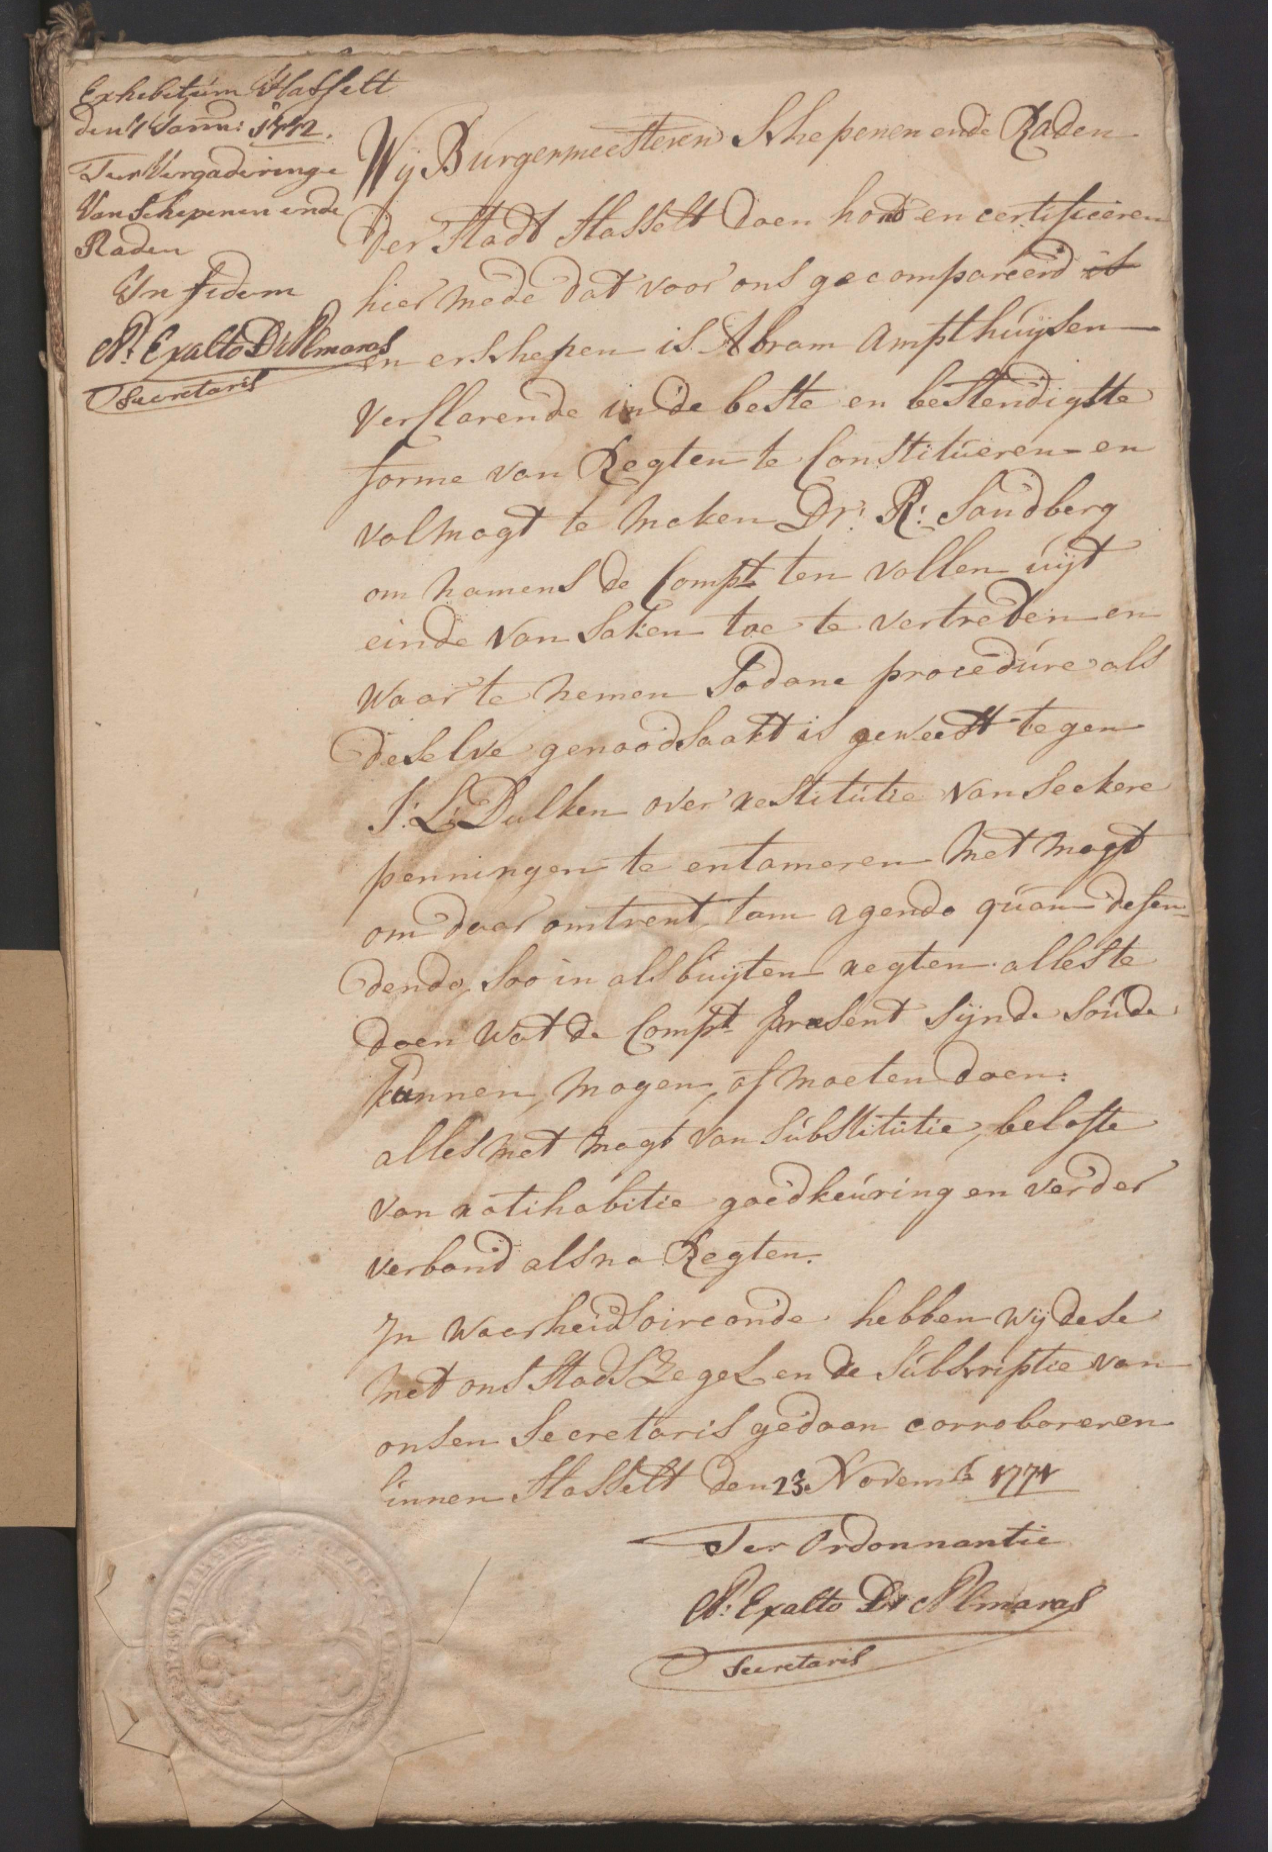 Exhibitum Hasselt
den 7 Jann: 1772.
Ter Vergaderinge
Van Schepenen ende
Raden
In fidem
N: Exalto D'Almaras
Secretaris
Wij Burgermeesteren Schepenen ende Raden
der Stadt Hasselt doen kond en certificeren
hier mede dat voor ons gecompareerd is
en erschepen is Abram Ampthuijsen
verklarende in de beste en bestendigste
forme van Regten te Constitueren en
volmagt te maken Dr: R: Sandberg
om namens de Compt ten vollen uijt
einde van saken toe te vertreden en
waar te nemen Sodane procedure als
deselve genoodsaakt is geweest tegen
J: L: Dulken over restitutie van seekere
penningen te entameren met magt
om daar omtrent, tam agendo quam defen-
dendo, soo in als buijten regten alles te
doen wat de Compt præsent sijnde soude
kunnen, mogen, of moeten doen:
alles met magt van substitutie, belofte
van ratihabitie goedkeuring en verder
verband als na Regten.
In waarheids oirconde hebben wij dese
met ons Stads Zegel en de Subscriptie van
onsen Secretaris gedaan corroboreren
binnen Hasselt den 23. Novemb. 1771
Ter Ordonnantie
N: Exalto D'Almaras
Secretaris